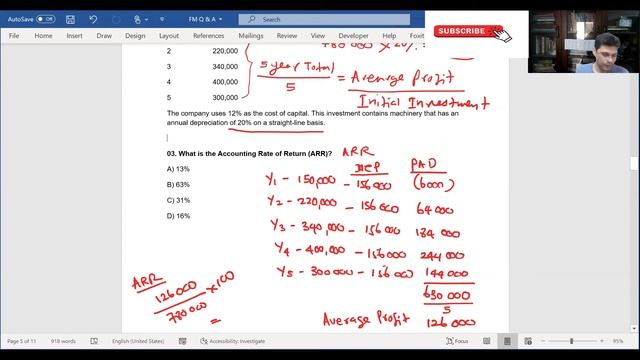 AutoSave Off
FM Q & A
SUBSCRIBE
2 220,000
3 340,000
4 400,000
5 300,000
780 000 × 20%
5 year Total / 5 = Average Profit / Initial Investment
The company uses 12% as the cost of capital. This investment contains machinery that has an
annual depreciation of 20% on a straight-line basis.
03. What is the Accounting Rate of Return (ARR)?
A) 13%
B) 63%
C) 31%
D) 16%
ARR
PAD
Y1 - 150,000 - 156 000 (6000)
Y2 - 220,000 - 156 000 64 000
Y3 - 340,000 - 156 000 184 000
Y4 - 400,000 - 156 000 244 000
Y5 - 300 000 - 156 000 144 000
630 000
5
Average Profit 126 000
ARR
126 000 / 780 000 × 100
=
Page 5 of 11 918 words English (United States) Accessibility: Investigate Focus 95%